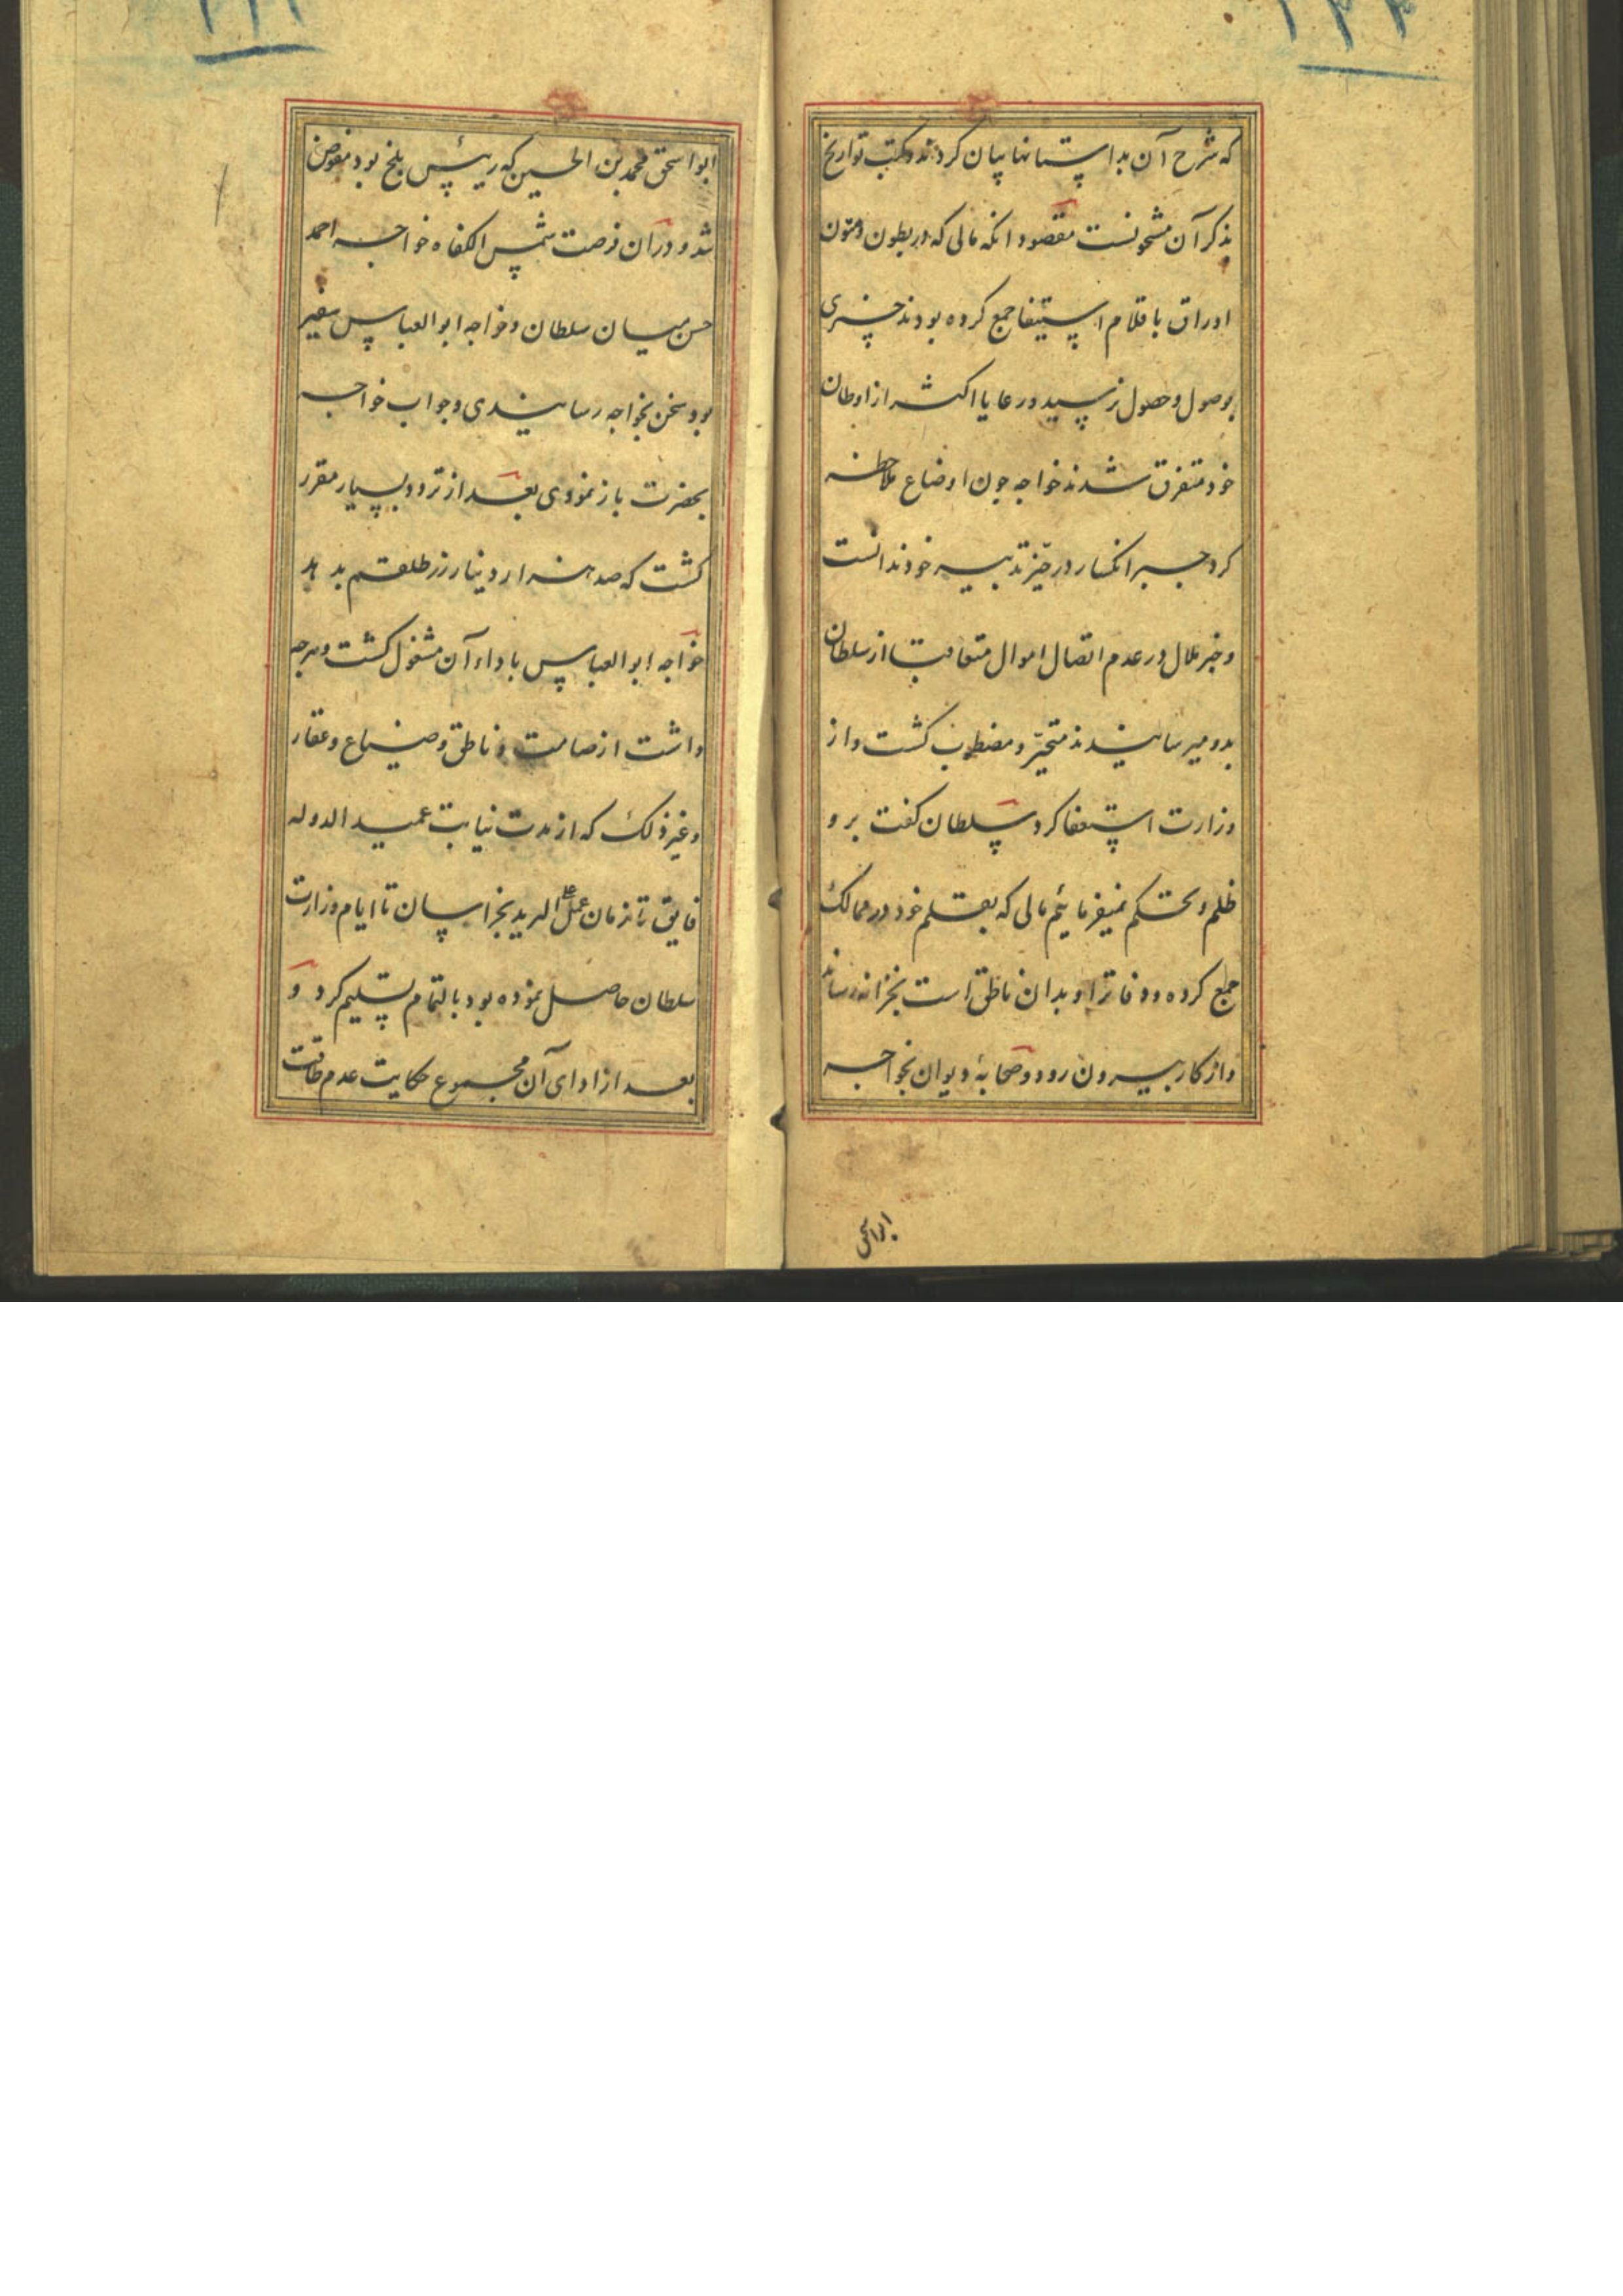 ۱۳۴
که شرح آن بداستانها بیان کردند و کتب تواریخ
بذکر آن مشحونست مقصود انکه مالی که در بطون و متون
اوراق باقلام استیفا جمع کرده بودند چیزی
بوصول و حصول نرسید و رعایا اکثر از اوطان
خود متفرق شدند خواجه چون اوضاع ملاحظه
کرد جبر انکسار در حیّز تدبیر خود ندانست
و خبر ملال در عدم اتصال اموال متعاقب از سلطان
بدو میرسانیدند متحیّر و مضطرب کشت و از
وزارت استعفا کرد سلطان کفت برو
ظلم و تحکم نمیفرمائیم مالی که بقلم خود در ممالک
جمع کرده و دفاتر او بدان ناطق است بخزانه رساند
و از کار بیرون رود و صحابهٔ دیوان بخواجه
ابواسحق
ابواسحق محمد بن الحسین که رئیس بلخ بود مفوض
شد و در آن فرصت شمس الکفاه خواجه احمد
حسن میان سلطان و خواجه ابوالعباس سفیر
بود سخن بخواجه رسانیدی و جواب خواجه
بحضرت باز نمودی بعد از تردد بسیار مقرر
کشت که صد هزار دینار زر طلقم بدهد
خواجه ابوالعباس باداء آن مشغول کشت و هرچه
داشت از صامت و ناطق و ضیاع و عقار
و غیر ذلک که از مدت نیابت عمید الدوله
فایق تا زمان عمل البرید بخراسان تا ایام وزارت
سلطان حاصل نموده بود بالتمام تسلیم کرد و
بعد از ادای آن مجموع حکایت عدم طاقت